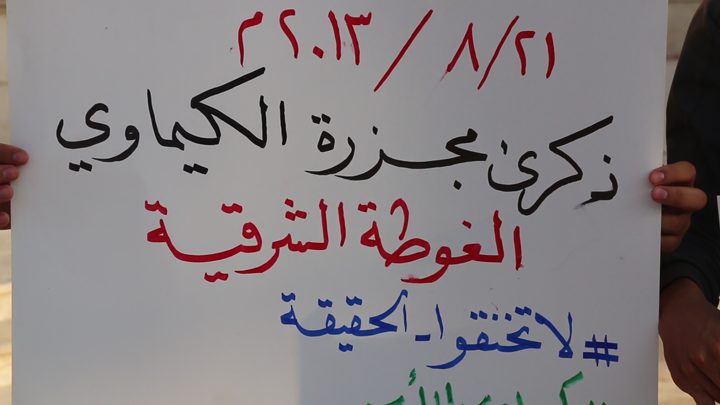 ٢١/ ٨ / ٢٠١٣ م
ذكرى مجزرة الكيماوي
الغوطة الشرقية
#لا تخنقوا_الحقيقة